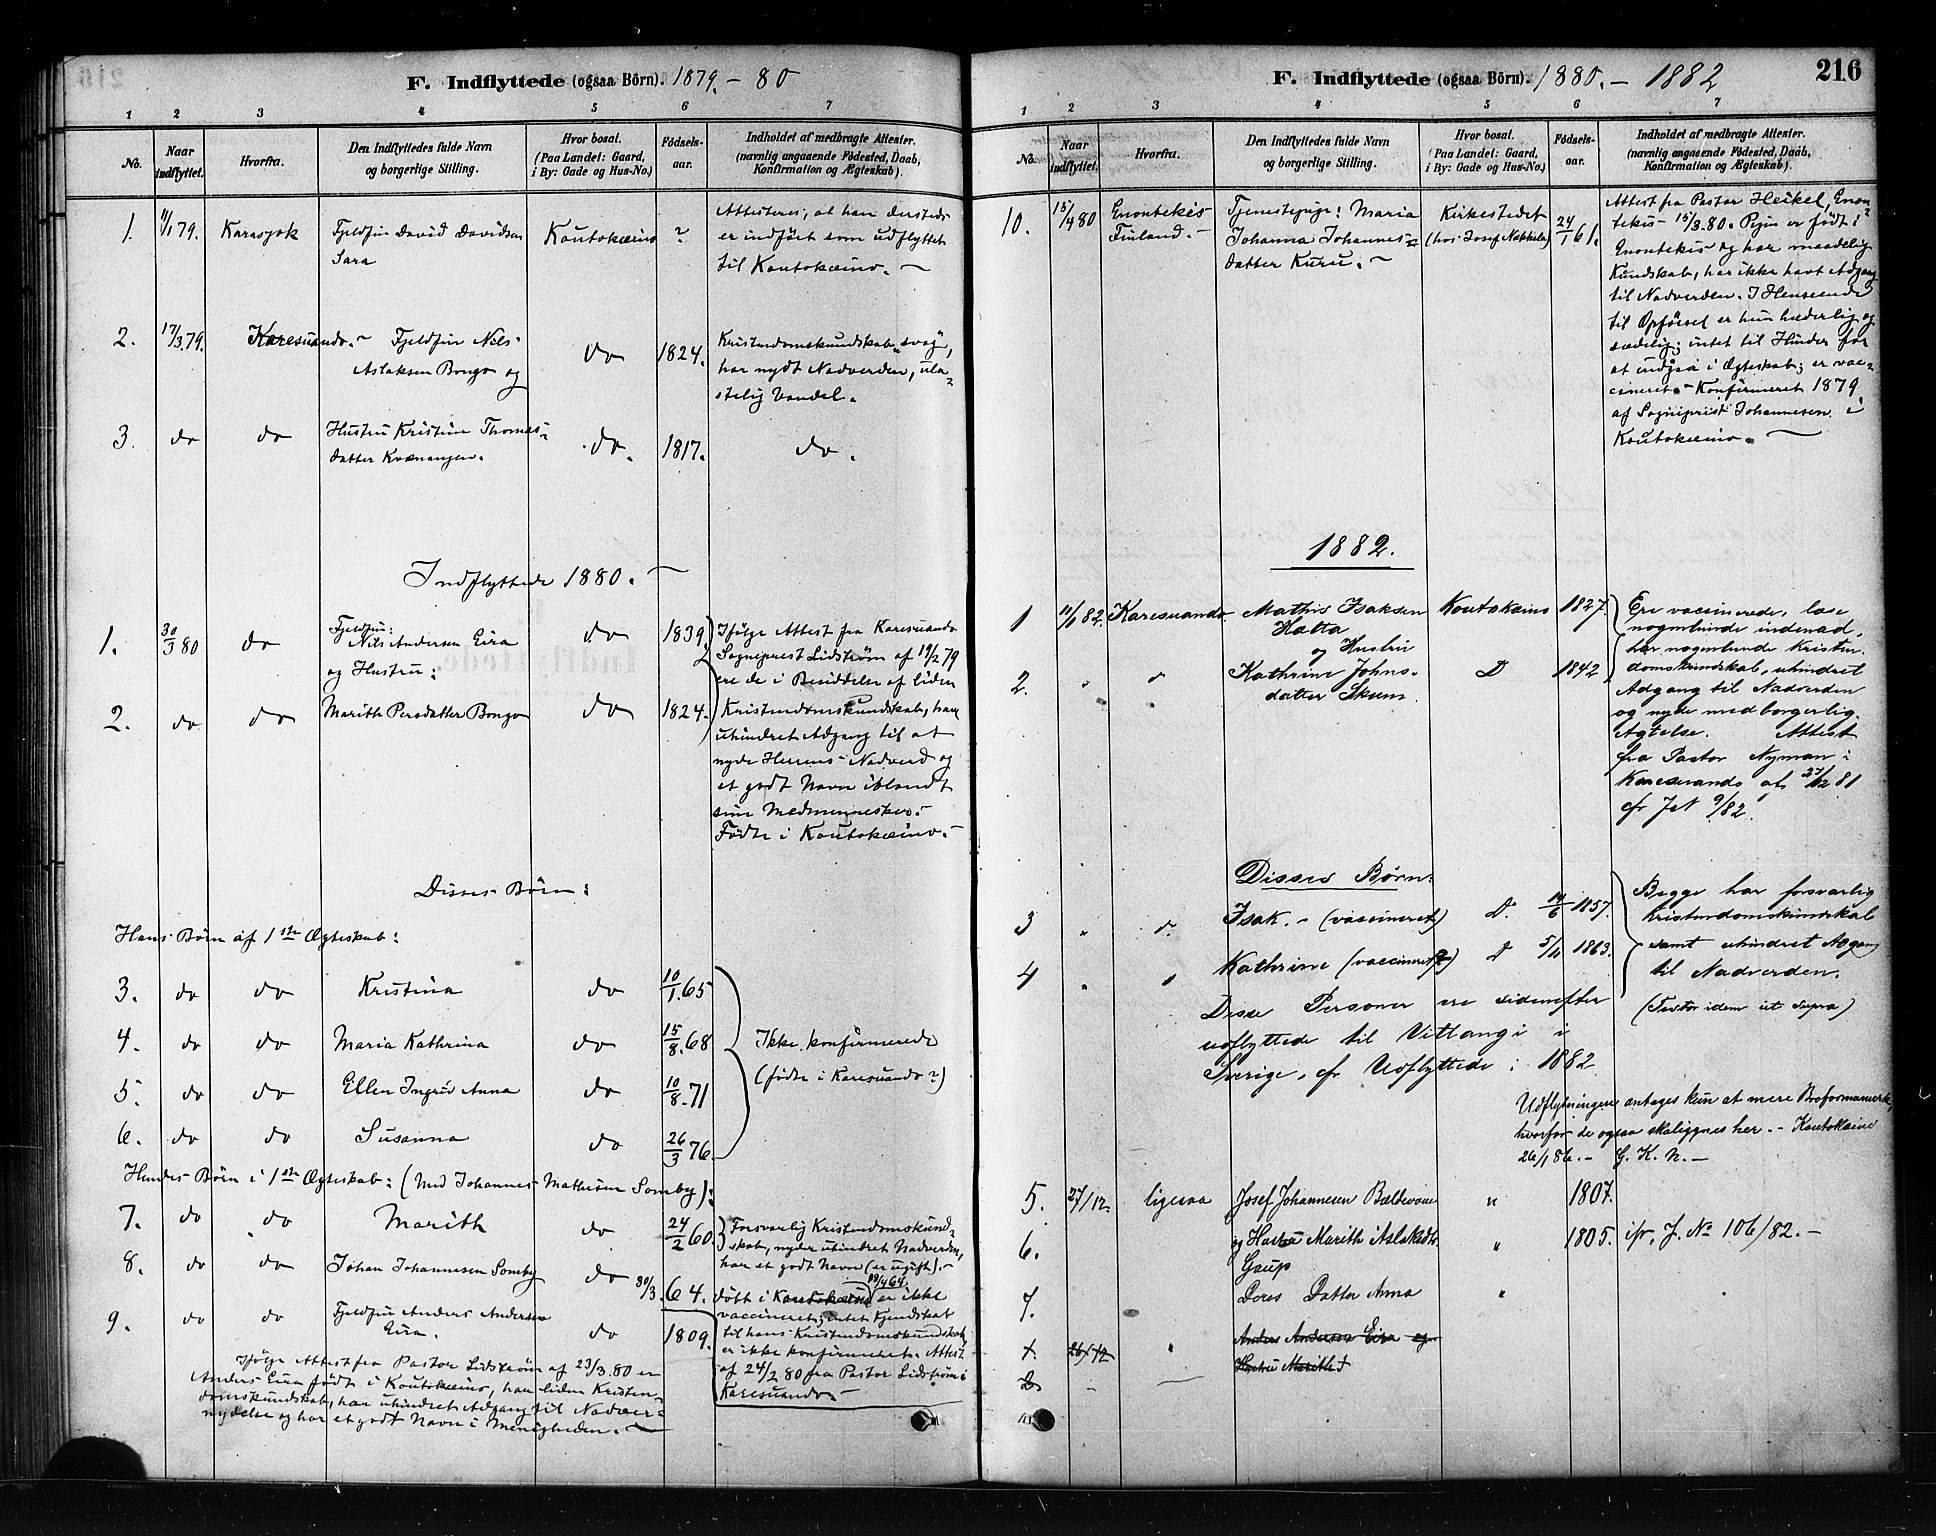 F. Indflyttede (ogsaa Börn). 1879. - 80
1 2 3 4 5 6 7
No. Naar indflyttet. Hvorfra. Den Indflyttedes fulde Navn og borgerlige Stilling. Hvor bosat. (Paa Landet: Gaard, i By: Gade og Hus-No.) Födsels-aar. Indholdet af medbragte Attester. (navnlig angaaende Födested, Daab, Konfirmation og Ægteskab).
1. 11/1 79. Karasjok Fjeldfin David Davidsen Koutokæino ? Attesteres, at han dersteds
Sara er indført som udflyttet
til Koutokæino. ~
2. 17/3 79. Karesuando. ~ Fjeldfin Nils do 1824. Kristendomskundskab svag,
Aslaksen Bongo og har nydt Nadverden, ula-
stelig Vandel.
3. do do Hustru Kristine Thomas- do. 1817. do.
datter Kvænangen.
Indflyttede 1880. ~
1. 30/3 80 do Fjeldfin: do 1839 Ifölge Attest fra Karesuando
Nils Andersen Eira Sogneprest Lidström af 19/2 79
og Hustru: ere de i Besiddelse af liden
2. do do Marith Persdatter Bongo do 1824. Kristendomskundskab, have
uhindret Adgang til at
nyde Herrens Nadverd og
et godt Navn iblandt
sine Medmennesker.
Födte i Koutokæino. -
Disses Börn:
Hans Börn af 1ste Ægteskab:
3. do do Kristina do 10/1. 65
4. do do Maria Kathrina do 15/8. 68 Ikke konfirmerede
5. do do Ellen Ingrid Anna do 10/8. 71 (födte i Karesuando?)
6. do do Susanna do 26/3 76.
Hendes Börn i 1ste Ægteskab: (Med Johannes Mathisen Somby):
7. do do Marith do 24/2 60. Forsvarlig Kristendomskund-
skab, nyder uhindret Nadverden,
har et godt Navn (er ugift). -
8. do do Johan Johannesen Somby do 30/3. 64. döbt i Koutokæino 18/4 64 er ikke
vaccineret; intet Kjendskab
9. do do Fjeldfin Anders Andersen do 1809. til hans Kristendomskundskab,
Eira. er ikke konfirmeret. Attest
af 24/2 80 fra Pastor Lidström i
Karesuando. -
Ifölge Attest fra Pastor Lidström af 23/3. 80 er
Anders Eira født i Koutokæino, har liden Kristen-
domskundskab, har uhindret Adgang til Nadver-
nydelse og har et godt Navn i Menigheden. ~
F. Indflyttede (ogsaa Börn). 1880. - 1882 216
1 2 3 4 5 6 7
No. Naar indflyttet. Hvorfra. Den Indflyttedes fulde Navn og borgerlige Stilling. Hvor bosat. (Paa Landet: Gaard, i By: Gade og Hus-No.) Födsels-aar. Indholdet af medbragte Attester. (navnlig angaaende Födested, Daab, Konfirmation og Ægteskab).
10. 15/4 80 Enontekis Tjenestepige: Maria Kirkestedet 24/1 61. Attest fra Pastor Heikel, Enon-
Finland. - Johanna Johannes- (hos Josef Nakkela) tekis 15/3. 80. Pigen er födt i
datter Kuru. ~ Enontekis og har maadelig
Kundskab, har ikke havt Adgang
til Nadverden. I Henseende
til Opförsel er hun hæderlig og
sædelig; intet til Hinder for
at indgaa i Ægteskab; er vac-
cineret. - Konfirmeret 1879
af Sogneprest Johannesen i
Koutokæino. ~
1882.
1 11/1 82. Karesuando. Mathis Isaksen Koutokæino 1827. Ere vaccinerede, læse
Hætta nogenlunde indenad,
og Hustru har nogenlunde Kristen-
2. " " Kathrine Johns- D 1842 domskundskab, uhindret
datter Skum. Adgang til Nadverden
og nyde medborgerlig
Agtelse. Attest
fra Pastor Nyman i
Karesuando af 27/12 81
cfr JN 9/82.
Disses Börn:
3 " d. Isak. - (vaccineret) D. 14/6 1857. Begge har forsvarlig
Kristendomskundskab
4 " " Kathrine (vaccineret) D 5/11 1863. samt uhindret Adgang
til Nadverden.
(Testor idem ut supra)
Disse Personer ere sidenefter
udflyttede til Vittangi i
Sverige, cfr Udflyttede i 1882
Udflytningen antages kun at være Proformaværk,
hvorfor de ogsaa skal ligges her. - Koutokæino
26/1 86. - G. K. N. -
5. 27/12. ligesaa Josef Johannesen Bældovuome " 1807.
6. og Hustru Marith Aslaksdtr. " 1805. cfr. J. No 106/82. -
Gaup
7. Deres Datter Anna "
1. 26/12 " Anders Andersen Eira og
2. " Hustru Marith